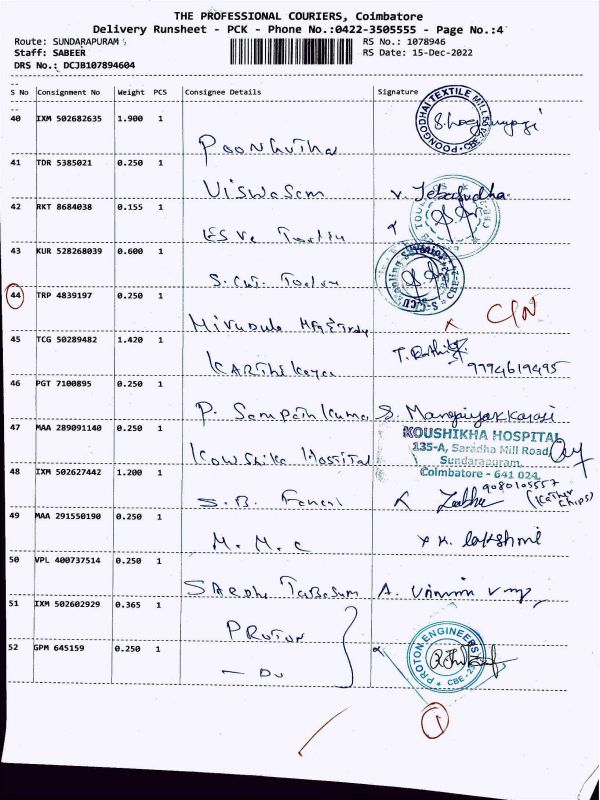 THE PROFESSIONAL COURIERS, Coimbatore
Delivery Runsheet - PCK - Phone No.:0422-3505555 - Page No.:4
Route: SUNDARAPURAM RS No.: 1078946
Staff: SABEER RS Date: 15-Dec-2022
DRS No.: DCJB107894604
S No Consignment No Weight PCS Consignee Details Signature
40 IXM 502682635 1.900 1
POONGODHAI TEXTILE MILL
41 TDR 5385021 0.250 1
Viswasam
42 RKT 8684038 0.155 1
43 KUR 528268039 0.600 1
44 TRP 4839197 0.250 1
Mirudula
C/N
45 TCG 50289482 1.420 1
Karthikeya 9994619495
46 PGT 7100895 0.250 1
P. Sampath Kumar S. Mangaiyarkarasi
47 MAA 289091140 0.250 1
Kowshika Hospital
KOUSHIKHA HOSPITAL
135-A, Saradha Mill Road
Sundarapuram,
Coimbatore - 641 024
48 IXM 502627442 1.200 1
S.B. 9080105557
49 MAA 291550190 0.250 1
M. M. C K. Lakshmi
50 VPL 400737514 0.250 1
51 IXM 502602929 0.365 1
Proton
52 GPM 645159 0.250 1
— Do
PROTON ENGINEERS
1